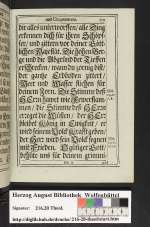 und Ungewittern.
dir alles unterworffen/ alle Ding
erkennen dich für ihren Schöpf-
fer/ und zittern vor deiner Gött-
lichen Majestät. Die hohen Ber-
ge und die Abgründ der Felsen
erschrecken/ wann du zornig bist:
der gantze Erdboden zittert/
Meer und Wasser fliehen für
deinem Zorn. Die Stimme deß
HErrn
HErrn
bleibet König in Ewigkeit/ er
wird seinem Volck Krafft geben/
der HErr wird sein Volck segnen
mit Frieden. O gütiger Gott
behüte uns für deinem grimmi-
Herzog August Bibliothek Wolfenbüttel
Signatur: 216.28 Theol.
http://diglib.hab.de/drucke/216-28-theol/start.htm